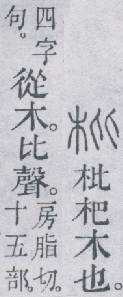 枇 枇杷木也。
四字句。從木。比聲。房脂切。十五部。